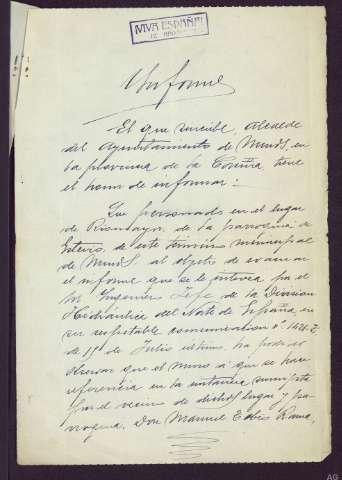 ¡VIVA ESPAÑA!
Informe
El que suscribe, Alcalde
del Ayuntamiento de Muros, en
la provincia de la Coruña tiene
el honor de informar:
Que personado en el lugar
de Riomayor, de la parroquia de
Esteiro, de este término municipal
de Muros, al objeto de evacuar
el informe que se le interesa por el
Sr. Ingeniero Jefe de la División
Hidráulica del Norte de España, en
su respetable comunicación nº
de 15 de Julio último, ha podido
observar que el muro a que se hace
referencia en la instancia suscrita
por el vecino de dichos lugar y pa-
rroquia, Don Manuel
AG